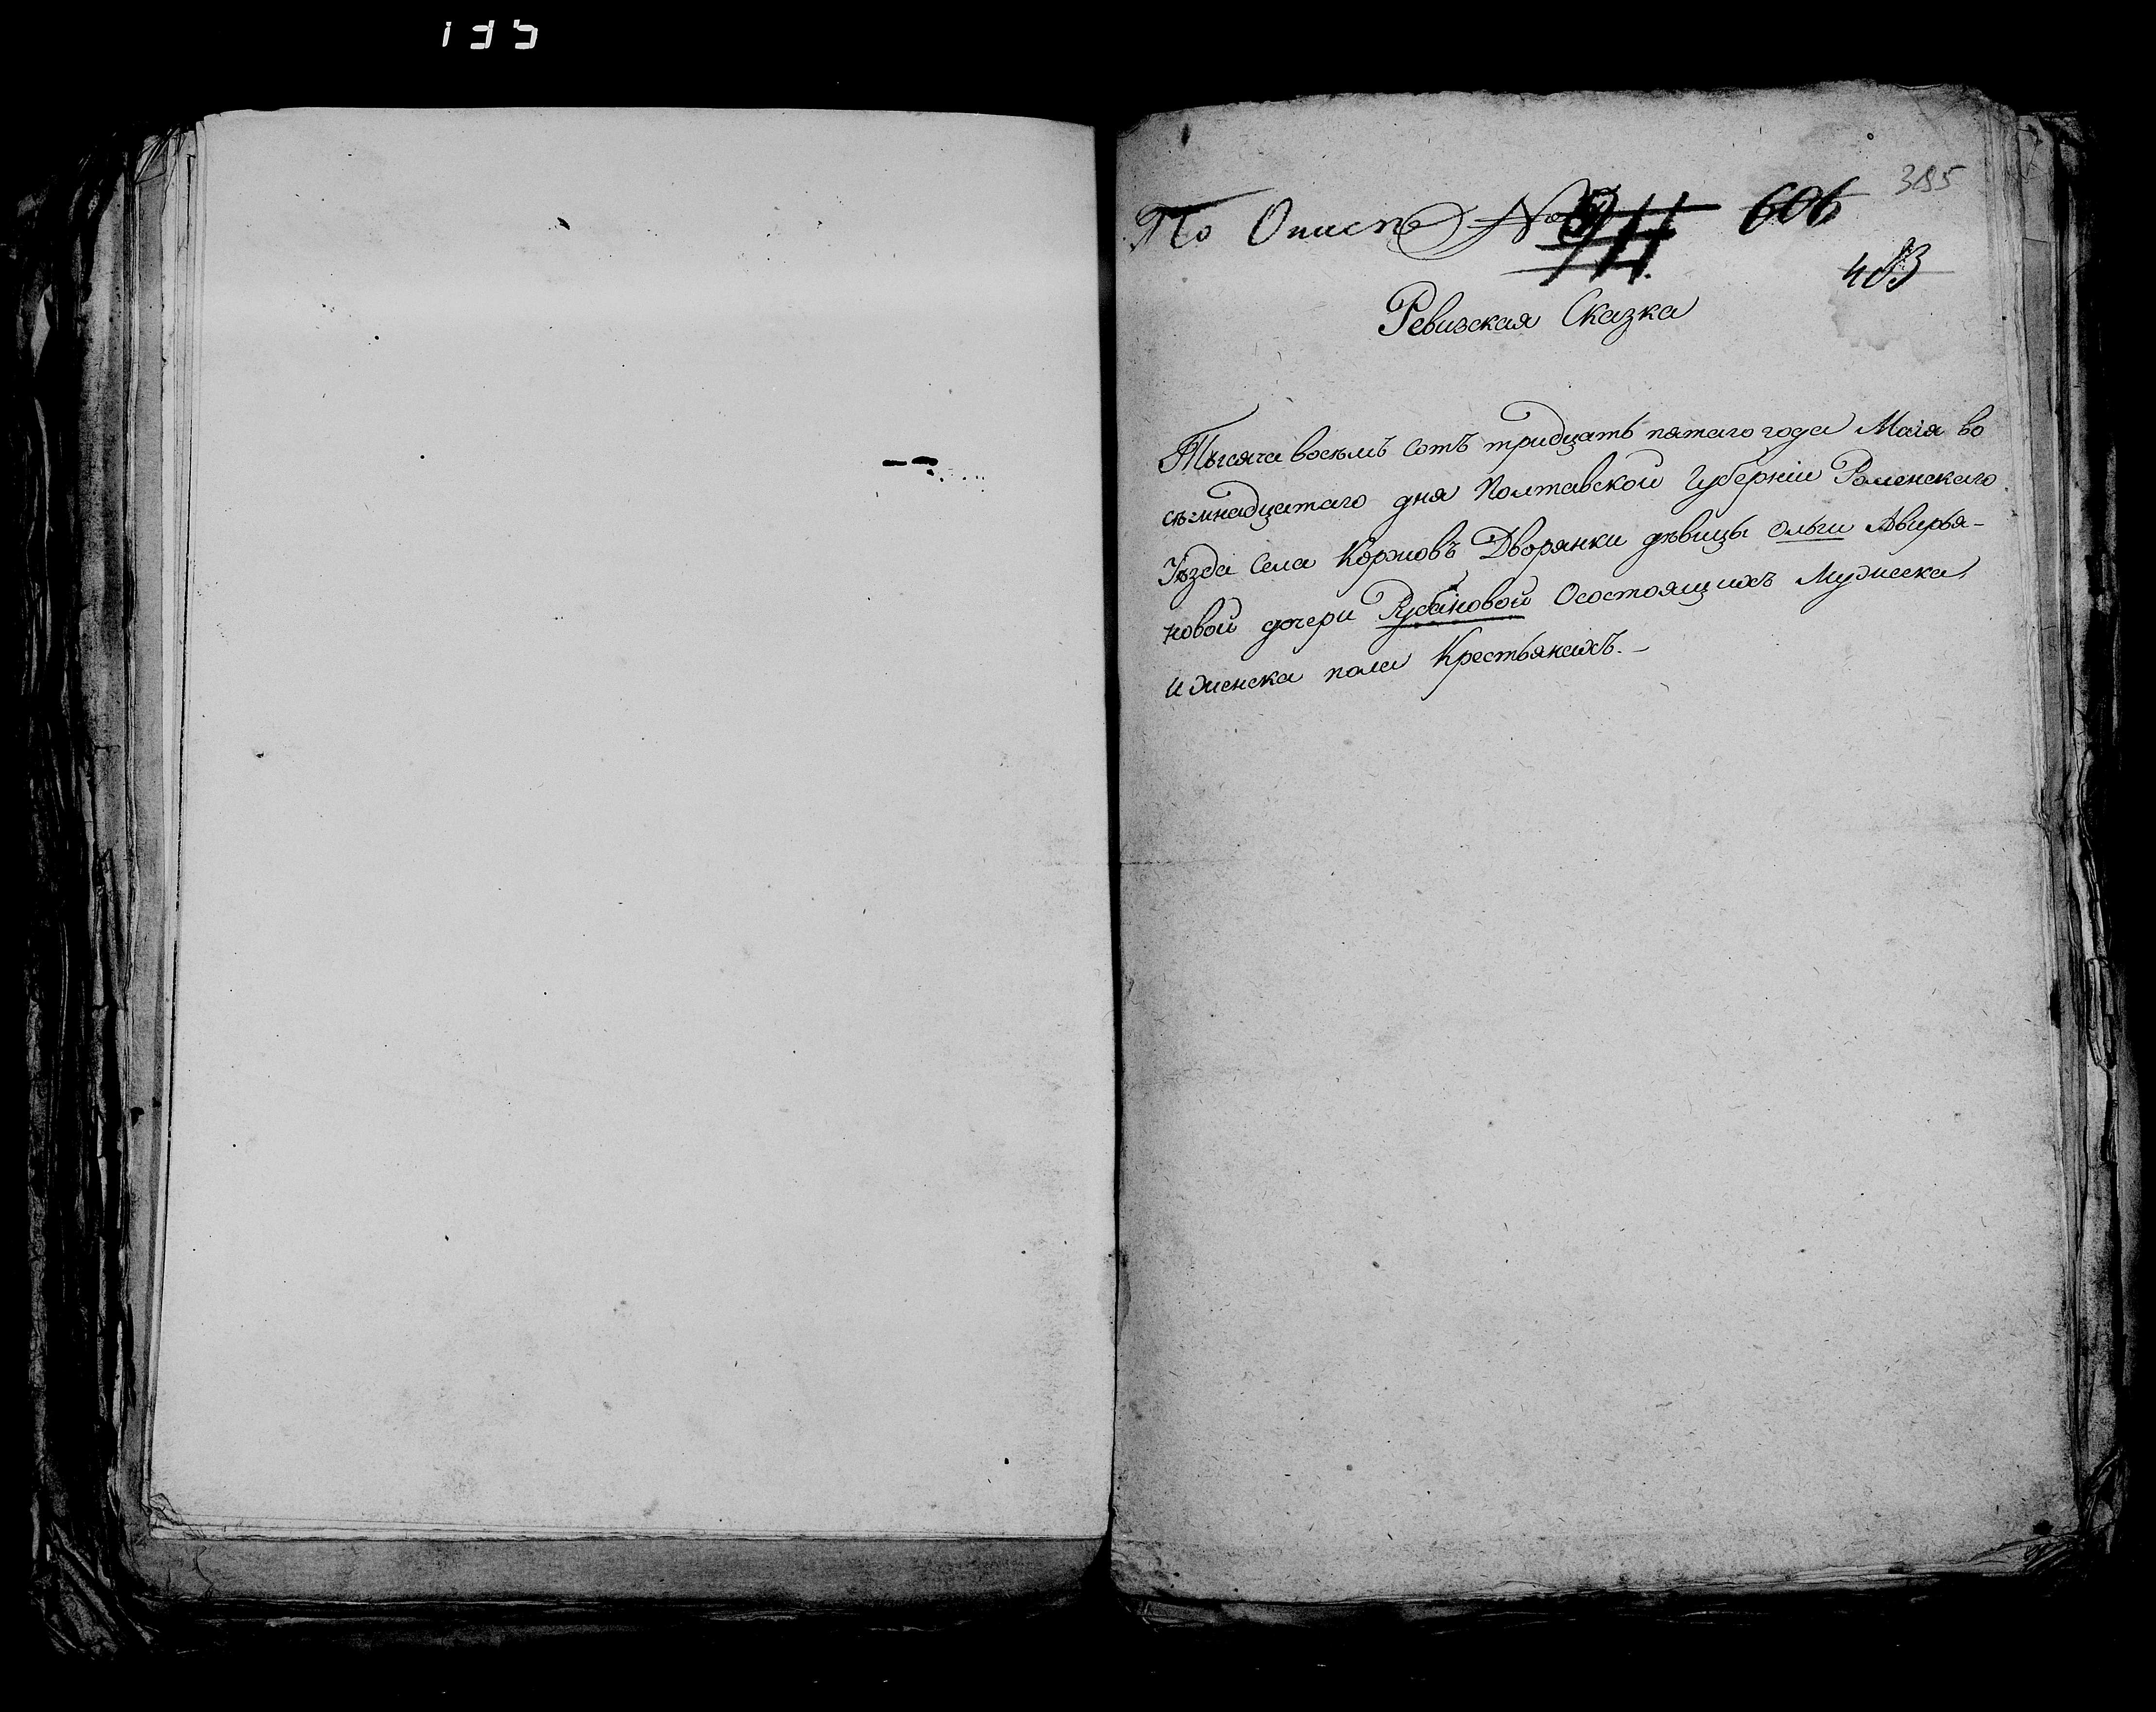 385
По Описѣ № 606
483
Ревизская Сказка
Тысяча восѣмъ сотъ тридцать пятаго года Маія во
сѣмнадцатаго дня Полтавской Губерніи Роменскаго
Уѣзда Села Коржовъ Дворянки дѣвицы Ольги Авирья-
новой дочери Рубановой Осостоящихъ Мужеска
и женска пола Крестьянахъ.-